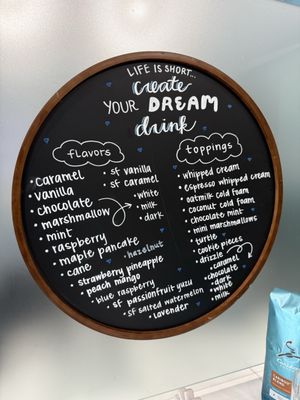 LIFE IS SHORT...
create
YOUR DREAM
drink
flavors
• caramel
• vanilla
• chocolate
• marshmallow
• mint
• raspberry
• maple pancake
• cane
• strawberry pineapple
• peach mango
• blue raspberry
• sf passionfruit yuzu
• sf salted watermelon
• lavender
• sf vanilla
• sf caramel
• white
• milk
• dark
• hazelnut
toppings
• whipped cream
• espresso whipped cream
• oatmilk cold foam
• coconut cold foam
• chocolate mint
• mini marshmallows
• turtle
• cookie pieces
• drizzle
• caramel
• chocolate
• dark
• white
• milk